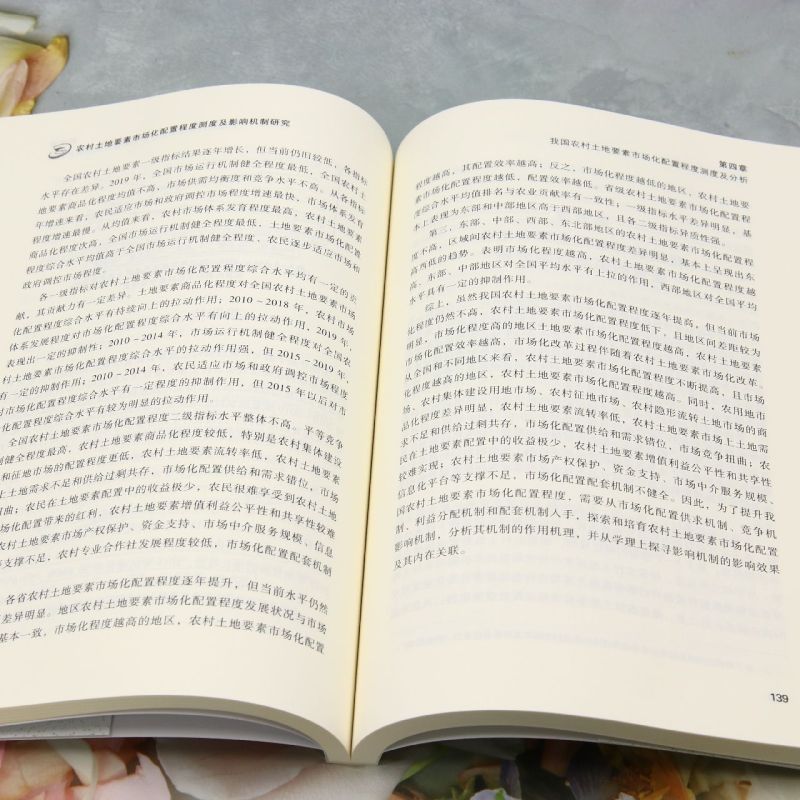 农村土地要素市场化配置程度测度及影响机制研究
全国农村土地要素一级指标结果逐年增长，但当前仍旧较低，各指标
水平存在差异。2019年，全国市场运行机制健全程度最低，全国农村土
地要素商品化程度均值高，市场供需均衡度和竞争水平不高。从各指标
年增速来看，农民适应市场和政府调控市场程度增速最快，市场体系发育
程度增速最慢。从均值来看，农村市场体系发育程度最高，农村土地要素
商品化程度次高，全国市场运行机制健全程度最低，土地要素市场化配置
程度综合水平均值高于全国市场运行机制健全程度、农民逐步适应市场和
政府调控市场程度。
各一级指标对农村土地要素市场化配置程度综合水平均有一定的贡
献，其贡献力有一定差异。土地要素商品化程度对全国农村土地要素市场
化配置程度综合水平有持续向上的拉动作用；2010~2018年，农村市场
体系发展程度对市场化配置程度综合水平有向上的拉动作用，2019年，
表现出一定的抑制性；2010~2014年，市场运行机制健全程度对全国农
村土地要素市场化配置程度综合水平的拉动作用强，但2015~2019年，
有一定的抑制作用；2010~2014年，农民适应市场和政府调控市场程度
对市场化配置程度综合水平有一定程度的抑制作用，但2015年以后对市
化配置程度综合水平有较为明显的拉动作用。
全国农村土地要素市场化配置程度二级指标水平整体不高。平等竞争
制健全程度最高，农村土地要素商品化程度较低，特别是农村集体建设
和征地市场的配置程度更低，农村土地要素流转率低，农村土地要素
上土地需求不足和供给过剩共存，市场化配置供给和需求错位，市场
曲；农民在土地要素配置中的收益极少，农民很难享受到农村土地
场化配置带来的红利，农村土地要素增值利益公平性和共享性较难
农村土地要素市场产权保护、资金支持、市场中介服务规模、信息
等支撑不足，农村专业合作社发展程度较低，市场化配置配套机制
各省农村土地要素市场化配置程度逐年提升，但当前水平仍然
差异明显。地区农村土地要素市场化配置程度发展状况与市场
基本一致，市场化程度越高的地区，农村土地要素市场化配置
我国农村土地要素市场化配置程度测度及分析 第四章
程度越高，其配置效率越高；反之，市场化程度越低的地区，农村土地要
素市场化配置程度越低，配置效率越低。省级农村土地要素市场化配置程
度综合水平均值排名与农业贡献率有一致性；一级指标水平差异明显，基
本上表现为东部和中部地区高于西部地区，且各二级指标异质性强。
第三，东部、中部、西部、东北部地区的农村土地要素市场化配置程
度不高，区域间农村土地要素市场化配置程度差异明显，基本上呈现出东
高西低的趋势。表明市场化程度越高，农村土地要素市场化配置程度越
高，东部、中部地区对全国平均水平有上拉的作用，西部地区对全国平均
水平具有一定的抑制作用。
综上，虽然我国农村土地要素市场化配置程度逐年提高，但当前市场
化程度仍然不高，农村土地要素市场化配置程度低下，且地区间差距较为
明显，市场化程度高的地区土地要素市场化配置程度越高，农村土地要素
市场化配置效率越高，市场化改革过程伴随着农村土地要素市场化改革。
从全国和不同地区来看，农村土地要素市场化配置程度不断提高，且市场
化程度越高的地区，农村土地要素市场化配置程度越高。同时，农用地市
场、农村集体建设用地市场、农村征地市场、农村隐形流转土地市场的商
品化程度差异明显，农村土地要素流转率低，农村土地要素市场上土地需
求不足和供给过剩共存，市场化配置供给和需求错位，市场竞争扭曲；农
民在土地要素配置中的收益极少，农村土地要素增值利益公平性和共享性
较难实现；农村土地要素市场产权保护、资金支持、市场中介服务规模、
信息化平台等支撑不足，市场化配置配套机制不健全。因此，为了提升我
国农村土地要素市场化配置程度，需要从市场化配置供求机制、竞争机
制、利益分配机制和配套机制入手，探索和培育农村土地要素市场化配置
影响机制，分析其机制的作用机理，并从学理上探寻影响机制的影响效果
及其内在关联。
139